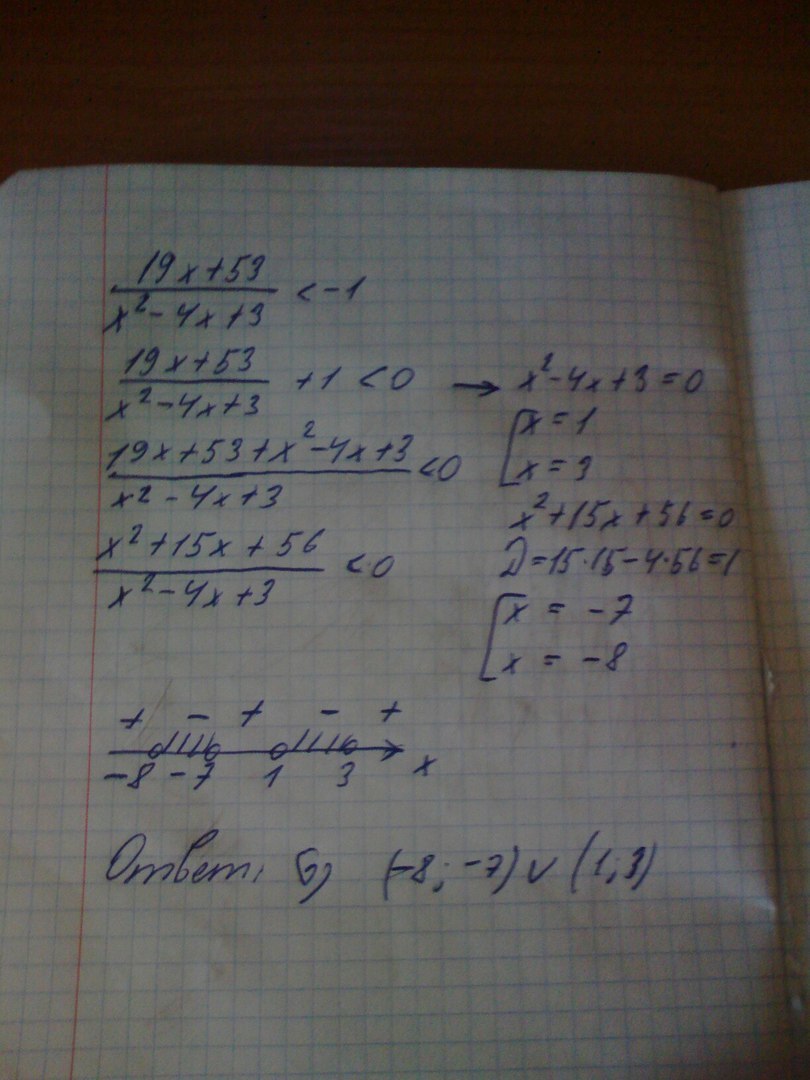 19x+53
x²-4x+3 < -1
19x+53
x²-4x+3 +1 <0 → x²-4x+3=0
[x=1
19x+53+x²-4x+3
x²-4x+3 <0
x=3
x²+15x+56=0
x²+15x+56
x²-4x+3 <0
D=15·15-4·56=1
[x = -7
x = -8
+ - + - +
-8 -7 1 3 x
Ответ: б) (-8; -7) ∨ (1; 3)